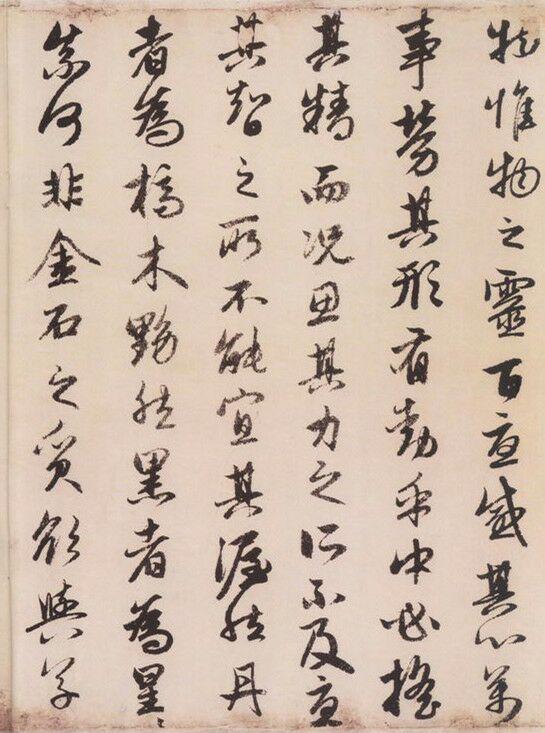 物惟物之靈百憂感其心萬
事勞其形有動乎中必搖
其精而況思其力之所不及憂
其智之所不能宜其渥然丹
者為槁木黟然黑者為星〻
奈何非金石之質欲與草